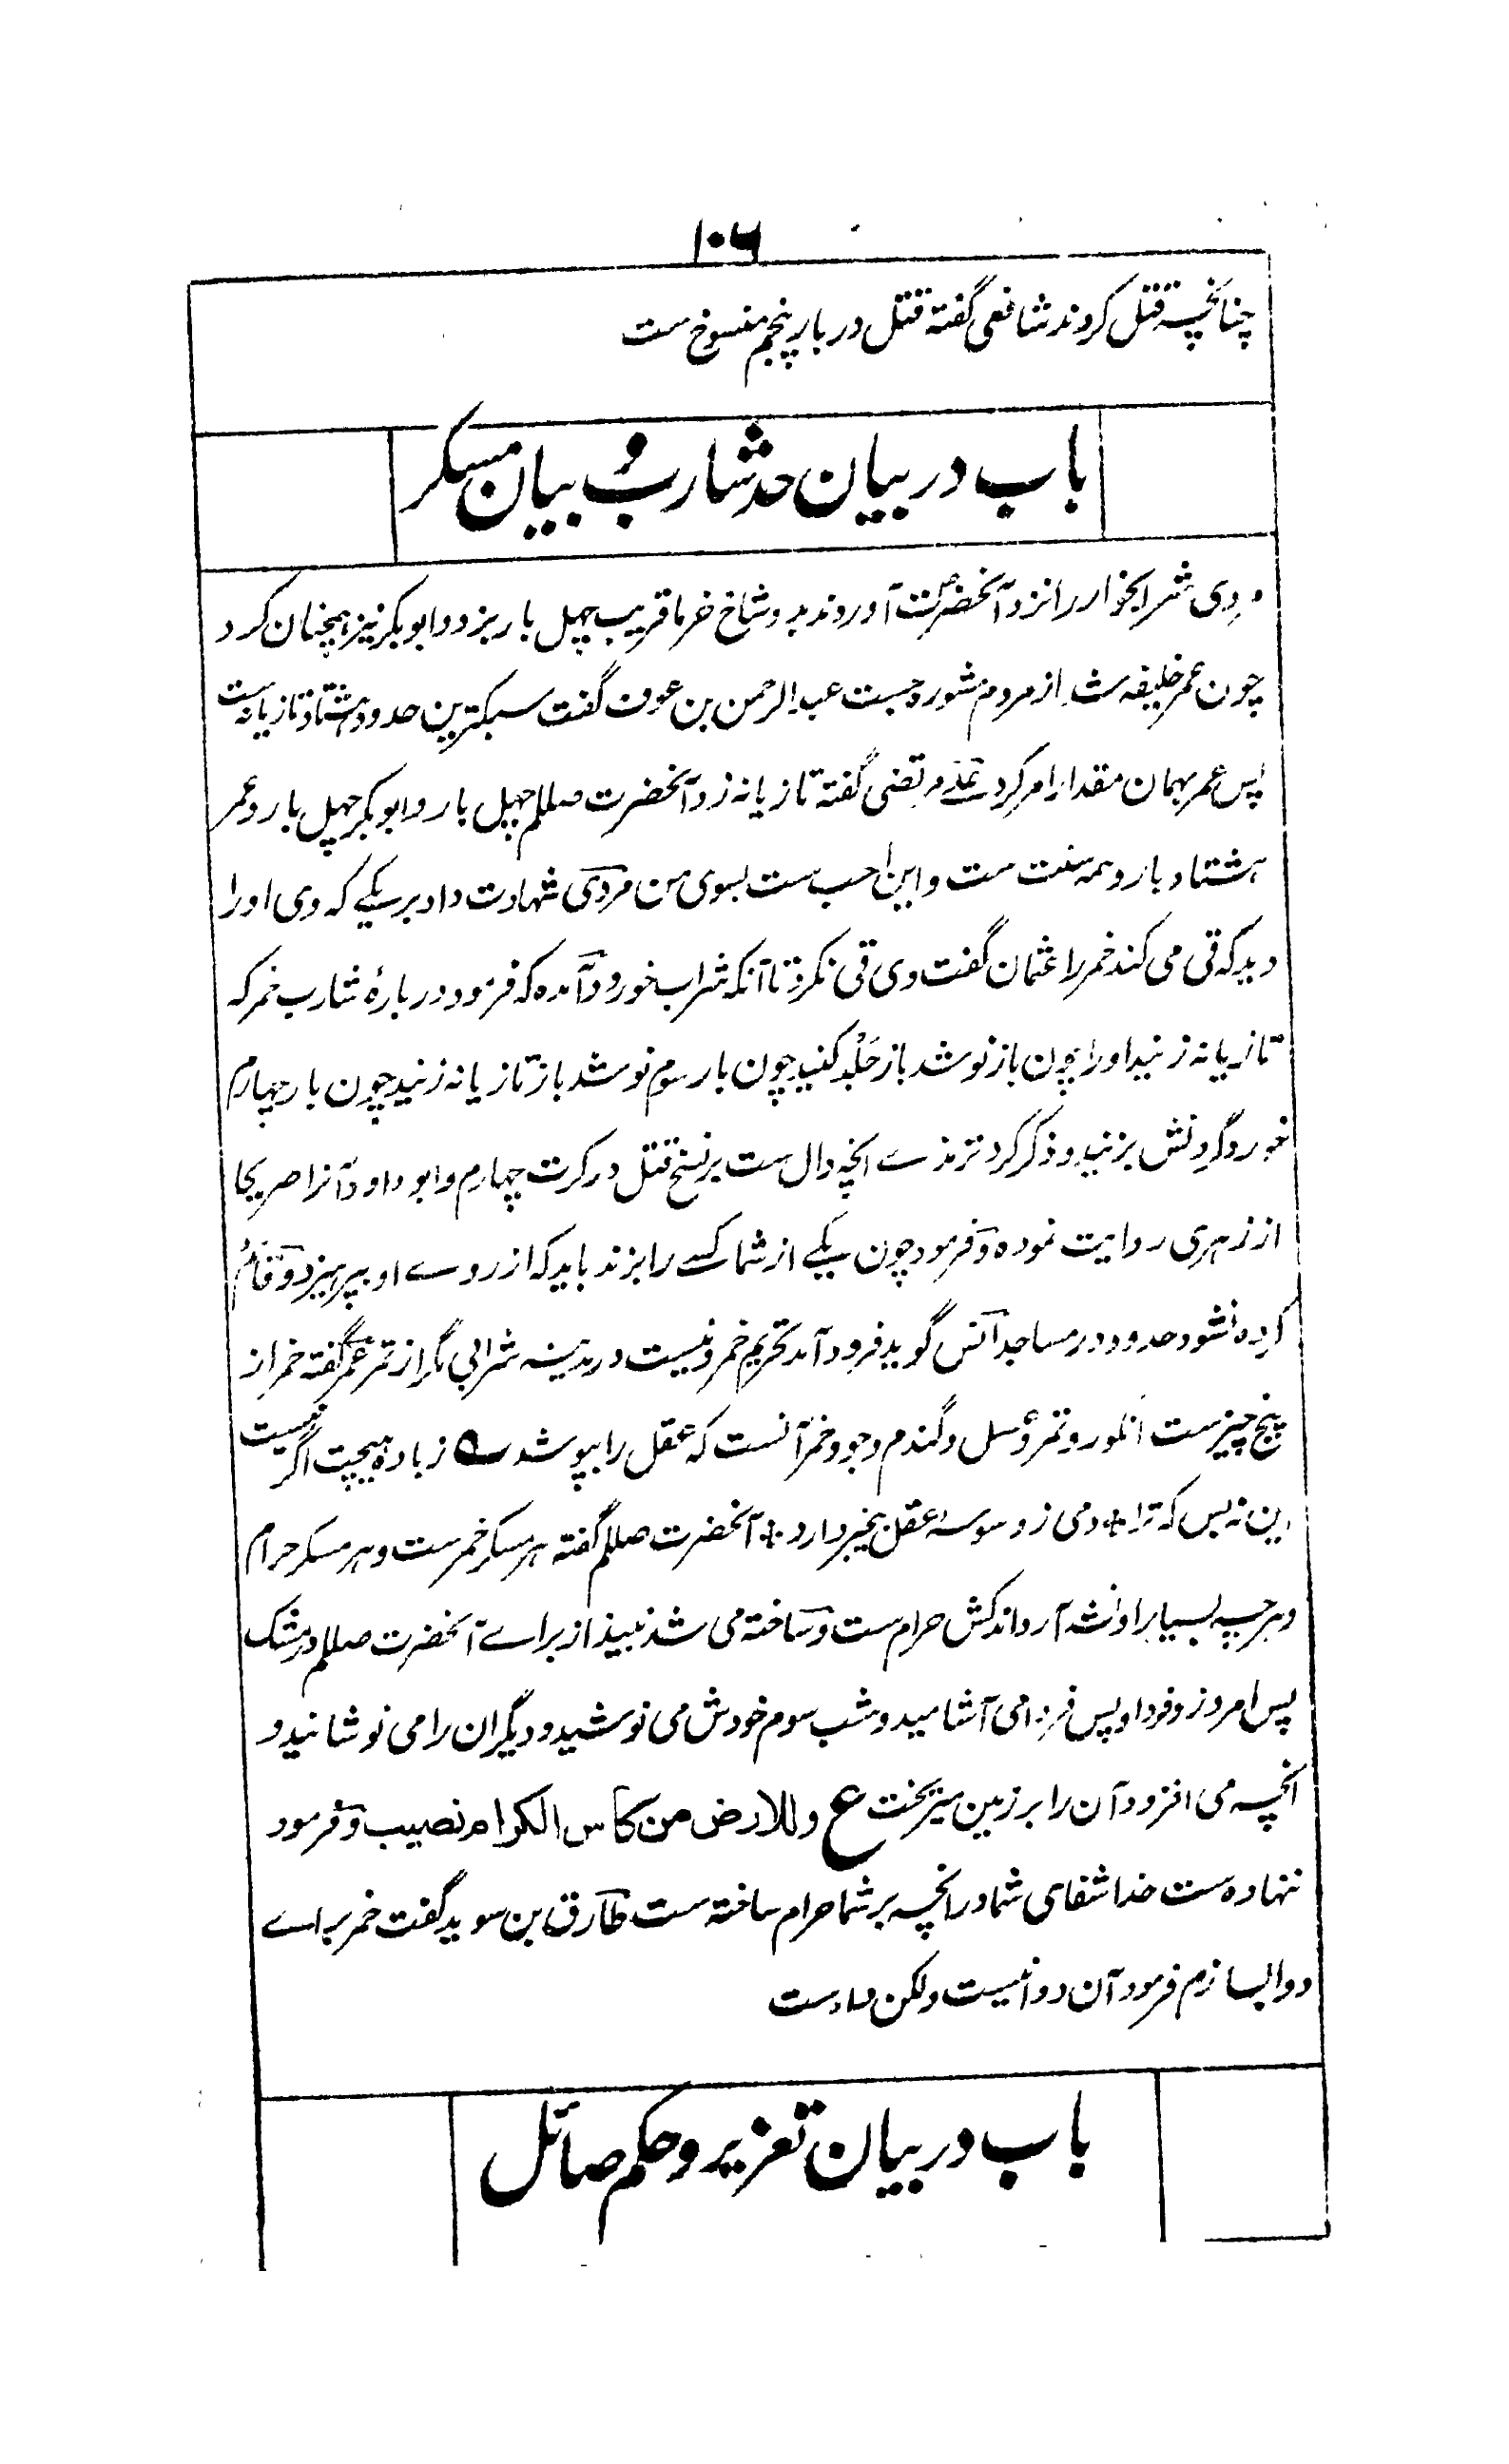 ۱۰۶
چنانچہ قتل کردند شافعی گفتہ قتل در بار پنجم منسوخ ست
باب در بیان حد شارب و بیان مسکر
مردی شرابخوار را نزد آنحضرت آوردند بدو شاخ خرما قریب چہل بار بزد و ابوبکر نیز ہمچنان کرد
چون عمر خلیفہ شد از مردم مشورہ جست عبد الرحمن بن عوف گفت سبکترین حدود ہشتاد تازیانہ ست
پس عمر بہمان مقدار امر کرد علی مرتضی گفتہ تازیانہ زد آنحضرت صللم چہل بار و ابوبکر چہل بار و عمر
ہشتاد بار و ہمہ سنت ست و این احب ست بسوی من مردی شہادت داد بر یکے کہ وی او را
دید کہ قی می کند خمر را عثمان گفت وی قی نکرد تا آنکہ شراب خورد و آمدہ کہ فرمود دربارۂ شارب خمر کہ
تازیانہ زنید او را چون باز نوشد باز جَلْد کنید چون بار سوم نوشد باز تازیانہ زنید چون بار چہارم
خورد گردنش بزنید و ذکر کرد ترمذے انچہ دال ست بر نسخ قتل در کرت چہارم و ابو داود آنرا صریحا
از زہری روایت نمودہ و فرمود چون یکے از شما کسے را بزند باید کہ از روے او بپرہیزد و قائم
کردہ نشود حدود در مساجد انس گوید فرود آمد تحریم خمر و نیست در مدینہ شرابی مگر از تمر عمر گفتہ خمر از
پنج چیز ست انگور و تمر و عسل و گندم و جو و خمر آنست کہ عقل را بپوشد ے ز بادہ ہیچت اگر نیست
این نہ بس کہ ترا * دمی ز وسوسۂ عقل بیخبر دارد * آنحضرت صللم گفتہ ہر مسکر خمرست و ہر مسکر حرام
و ہرچہ بسیار او نشہ آرد اندکش حرام ست و ساختہ می شد نبیذ از براے آنحضرت صللم در مشک
پس امروز و فردا و پس فردا می آشامید و شب سوم خودش می نوشید و دیگران را می نوشانید و
انچہ می افزود آن را بر زمین میریخت ع وللارض من کاس الکرام نصیب و فرمود
ننہادہ ست خدا شفای شما در انچہ بر شما حرام ساختہ ست طارق بن سوید گفت خمر براے
دوا بسازم فرمود آن دوا نیست ولکن داء ست
باب در بیان تعزیر و حکم صائل